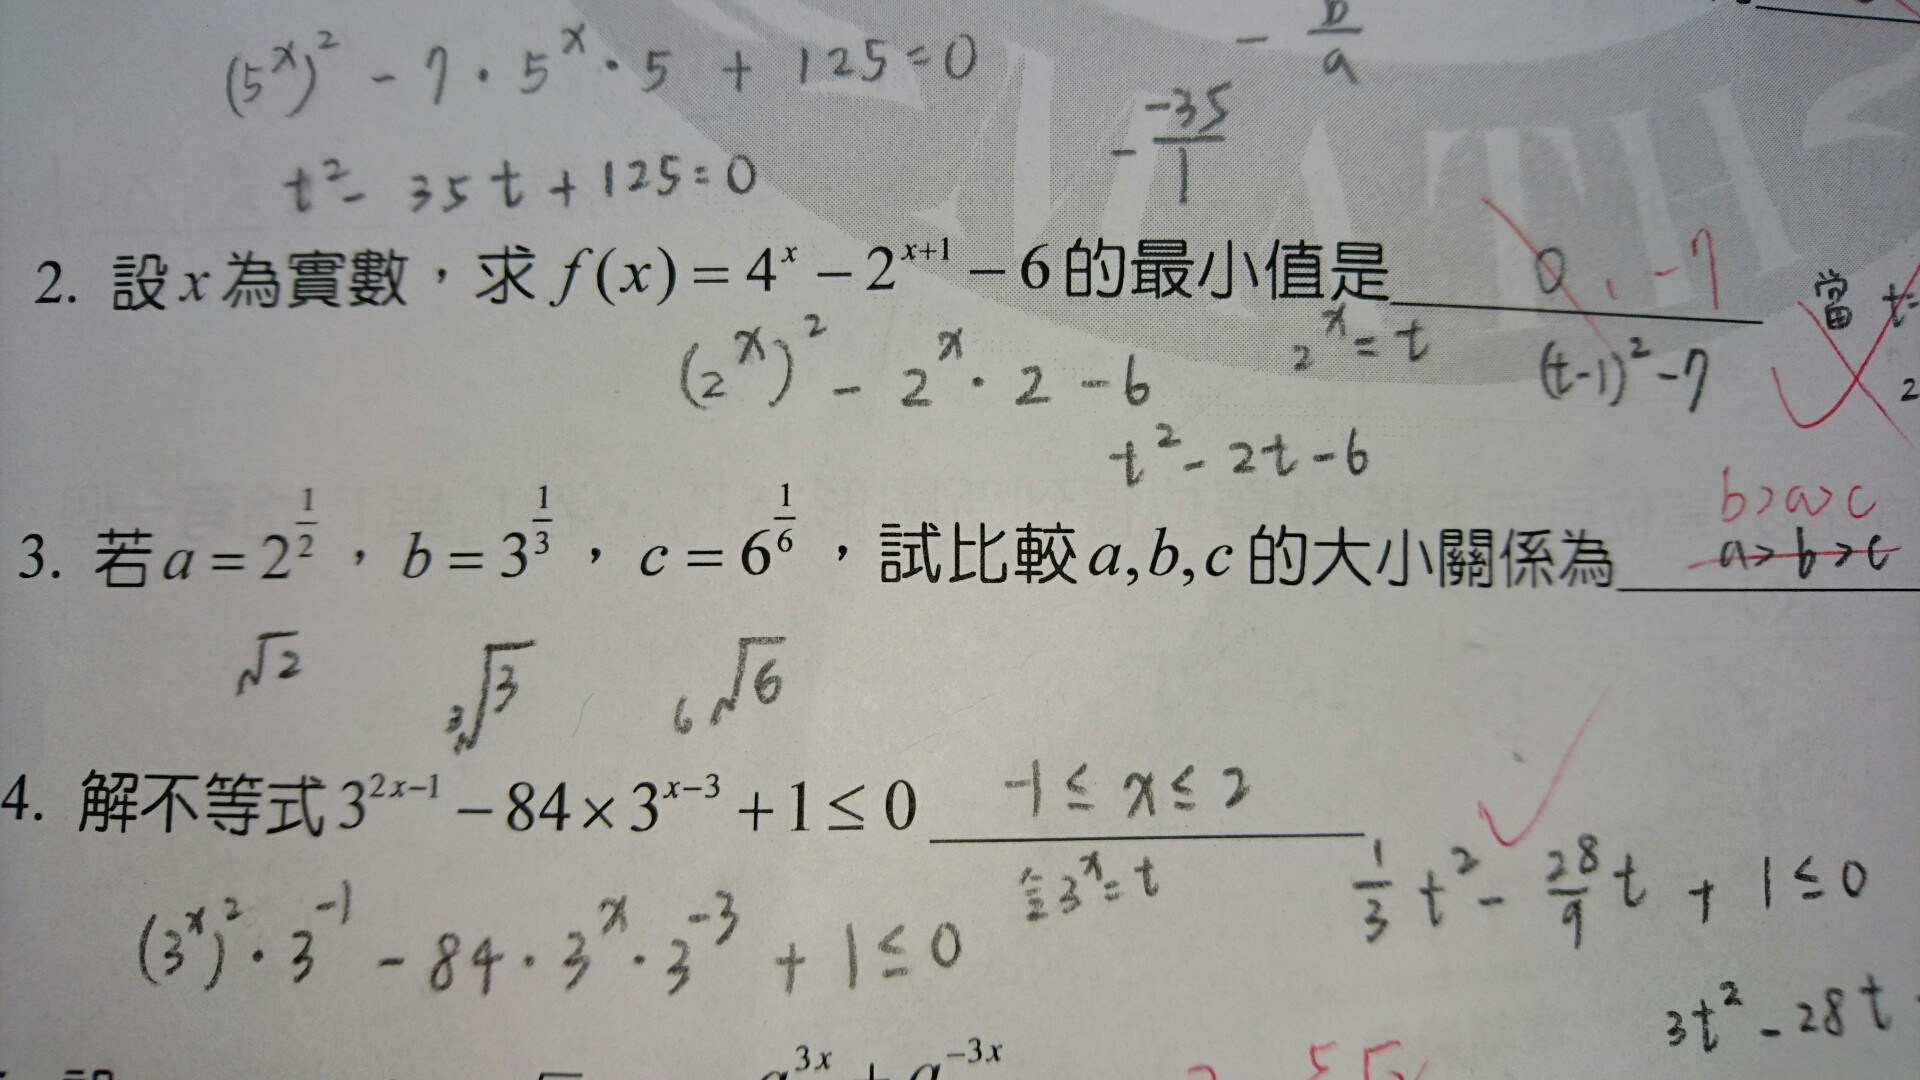 (5^x)^2 - 7・5^x・5 + 125 = 0
- b/a
- -35/1
t^2 - 35t + 125 = 0
2. 設x為實數，求 f(x) = 4^x − 2^{x+1} − 6的最小值是 0 , -7
當 t=
(2^x)^2 - 2^x・2 - 6
2^x = t
(t-1)^2 - 7
2
t^2 - 2t - 6
b>a>c
3. 若a = 2^{1/2}，b = 3^{1/3}，c = 6^{1/6}，試比較a,b,c的大小關係為 a>b>c
√2
3√3
6√6
4. 解不等式3^{2x−1} − 84×3^{x−3} + 1 ≤ 0 -1 ≤ x ≤ 2
令3^x = t
1/3 t^2 - 28/9 t + 1 ≤ 0
(3^x)^2・3^{-1} - 84・3^x・3^{-3} + 1 ≤ 0
3t^2 - 28t
a^{3x} + a^{−3x}
MATH